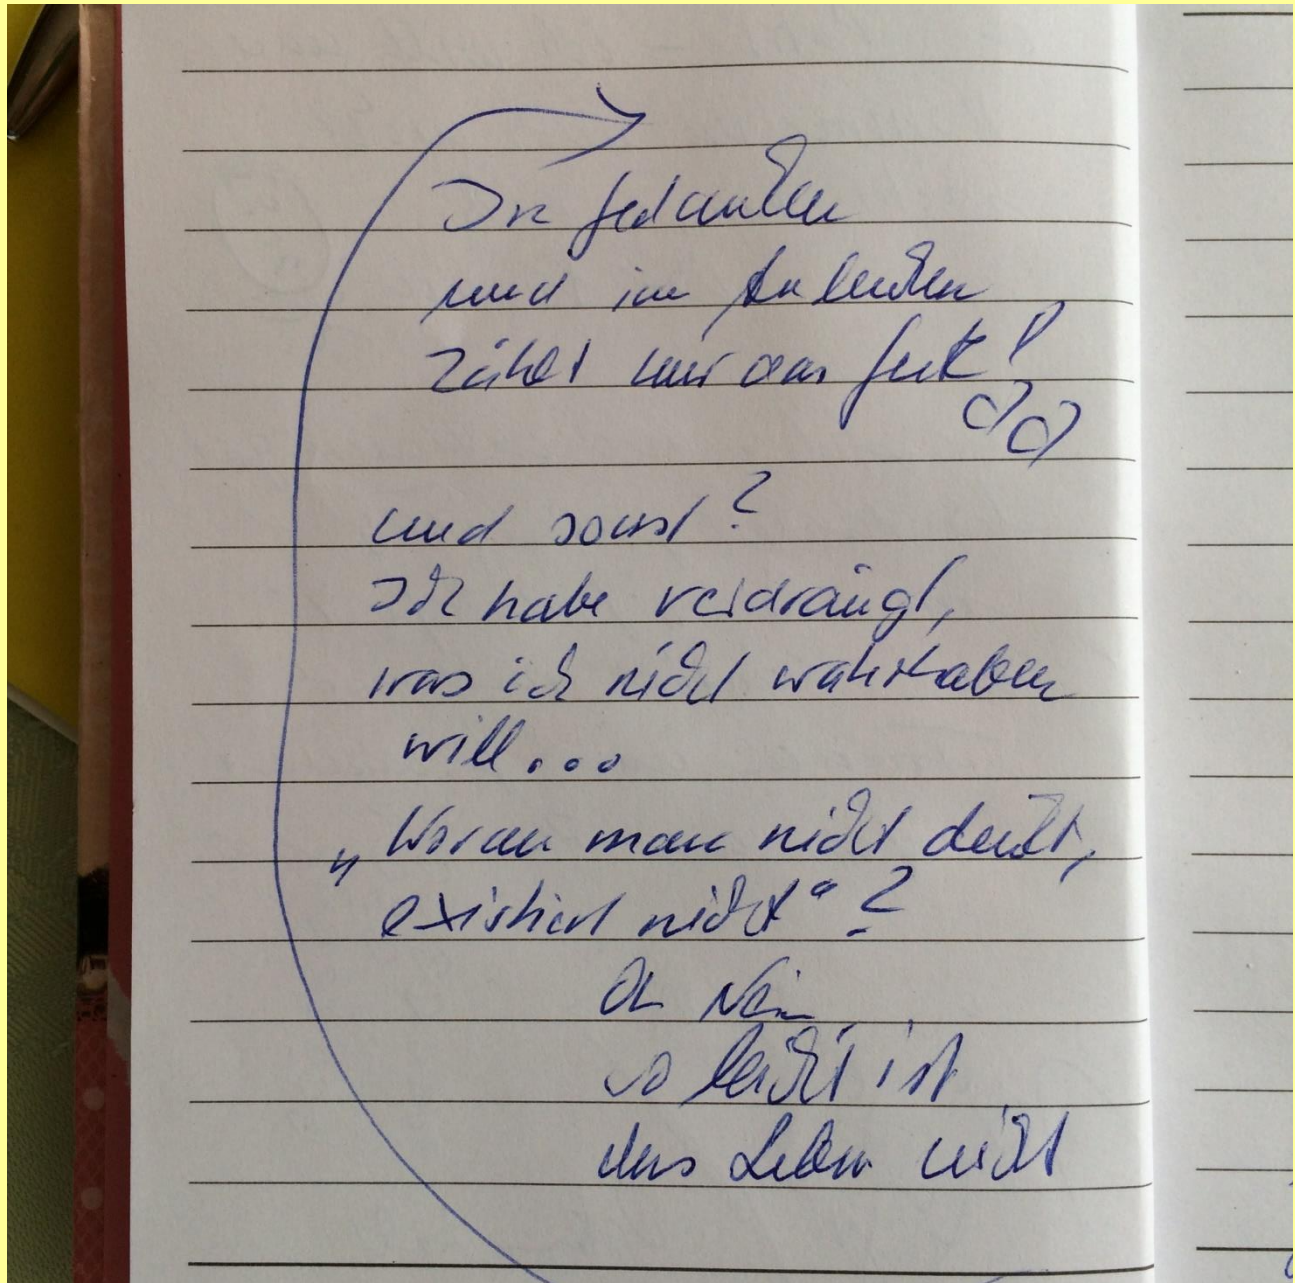 In Gedanken
und im Andenken
zählt nur das Gute!
und sonst?
Ich habe verdrängt,
was ich nicht wahrhaben
will...
„Woran man nicht denkt,
existiert nicht“?
Oh Nein
so leicht ist
das Leben nicht